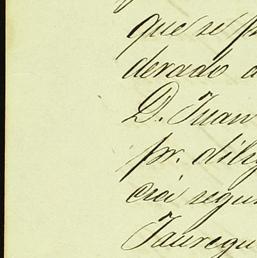 que se p
derado a
D. Juan
pr. dilig
cia segu
Jauregu